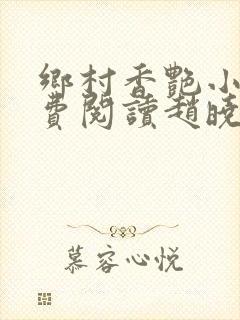 鄉村香艷小
費閱讀趙曉
慕容心悅